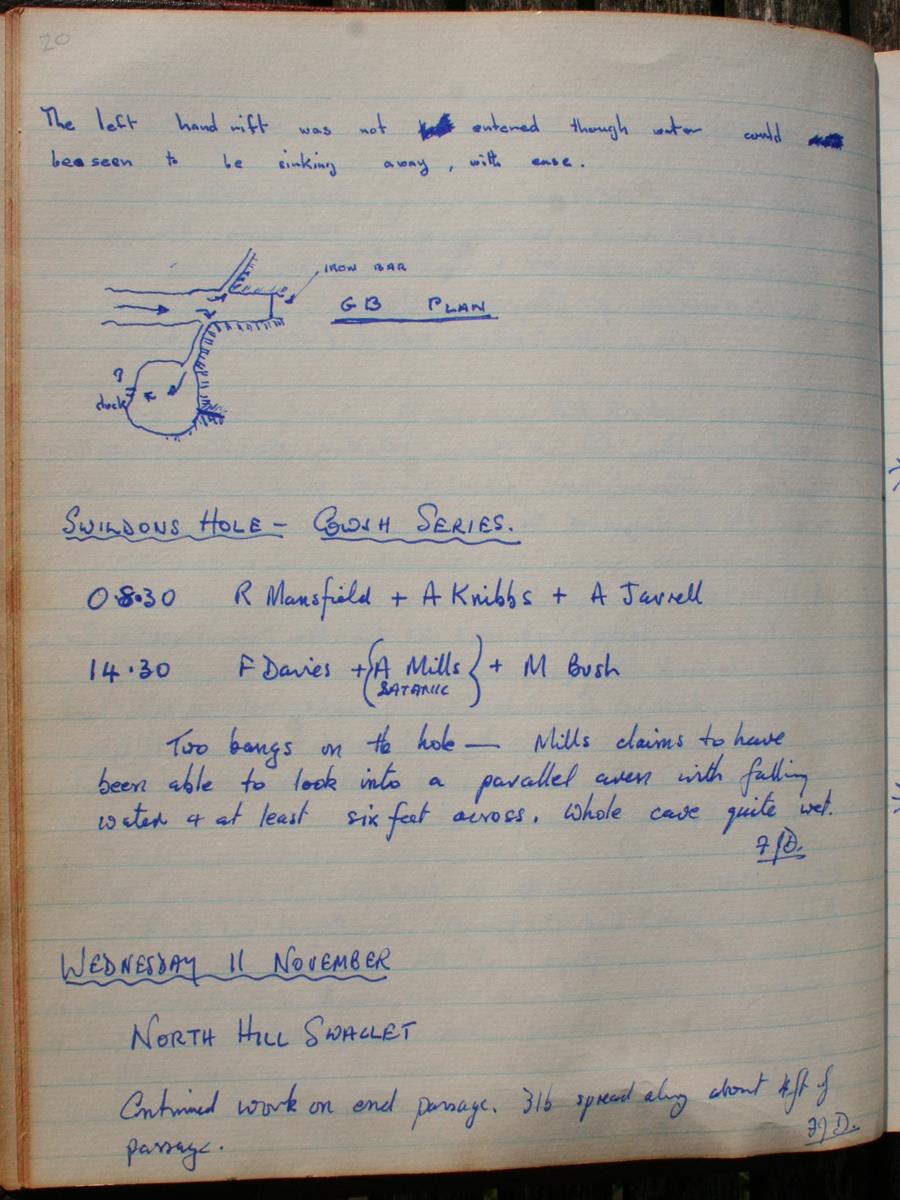 20
The left hand rift was not entered though water could
bee seen to be sinking away, with ease.
IRON BAR
GB PLAN
?
duck
SWILDONS HOLE - COWSH SERIES.
08.30 R Mansfield + A Knibbs + A Jarrell
14.30 F Davies + {A Mills} + M Bush
SATANIC
Two bangs on the hole — Mills claims to have
been able to look into a parallel aven with falling
water & at least six feet across. Whole cave quite wet.
FJD.
WEDNESDAY 11 NOVEMBER
NORTH HILL SWALLET
Continued work on end passage. 3lb spread along about 4ft of
passage.
FJD.